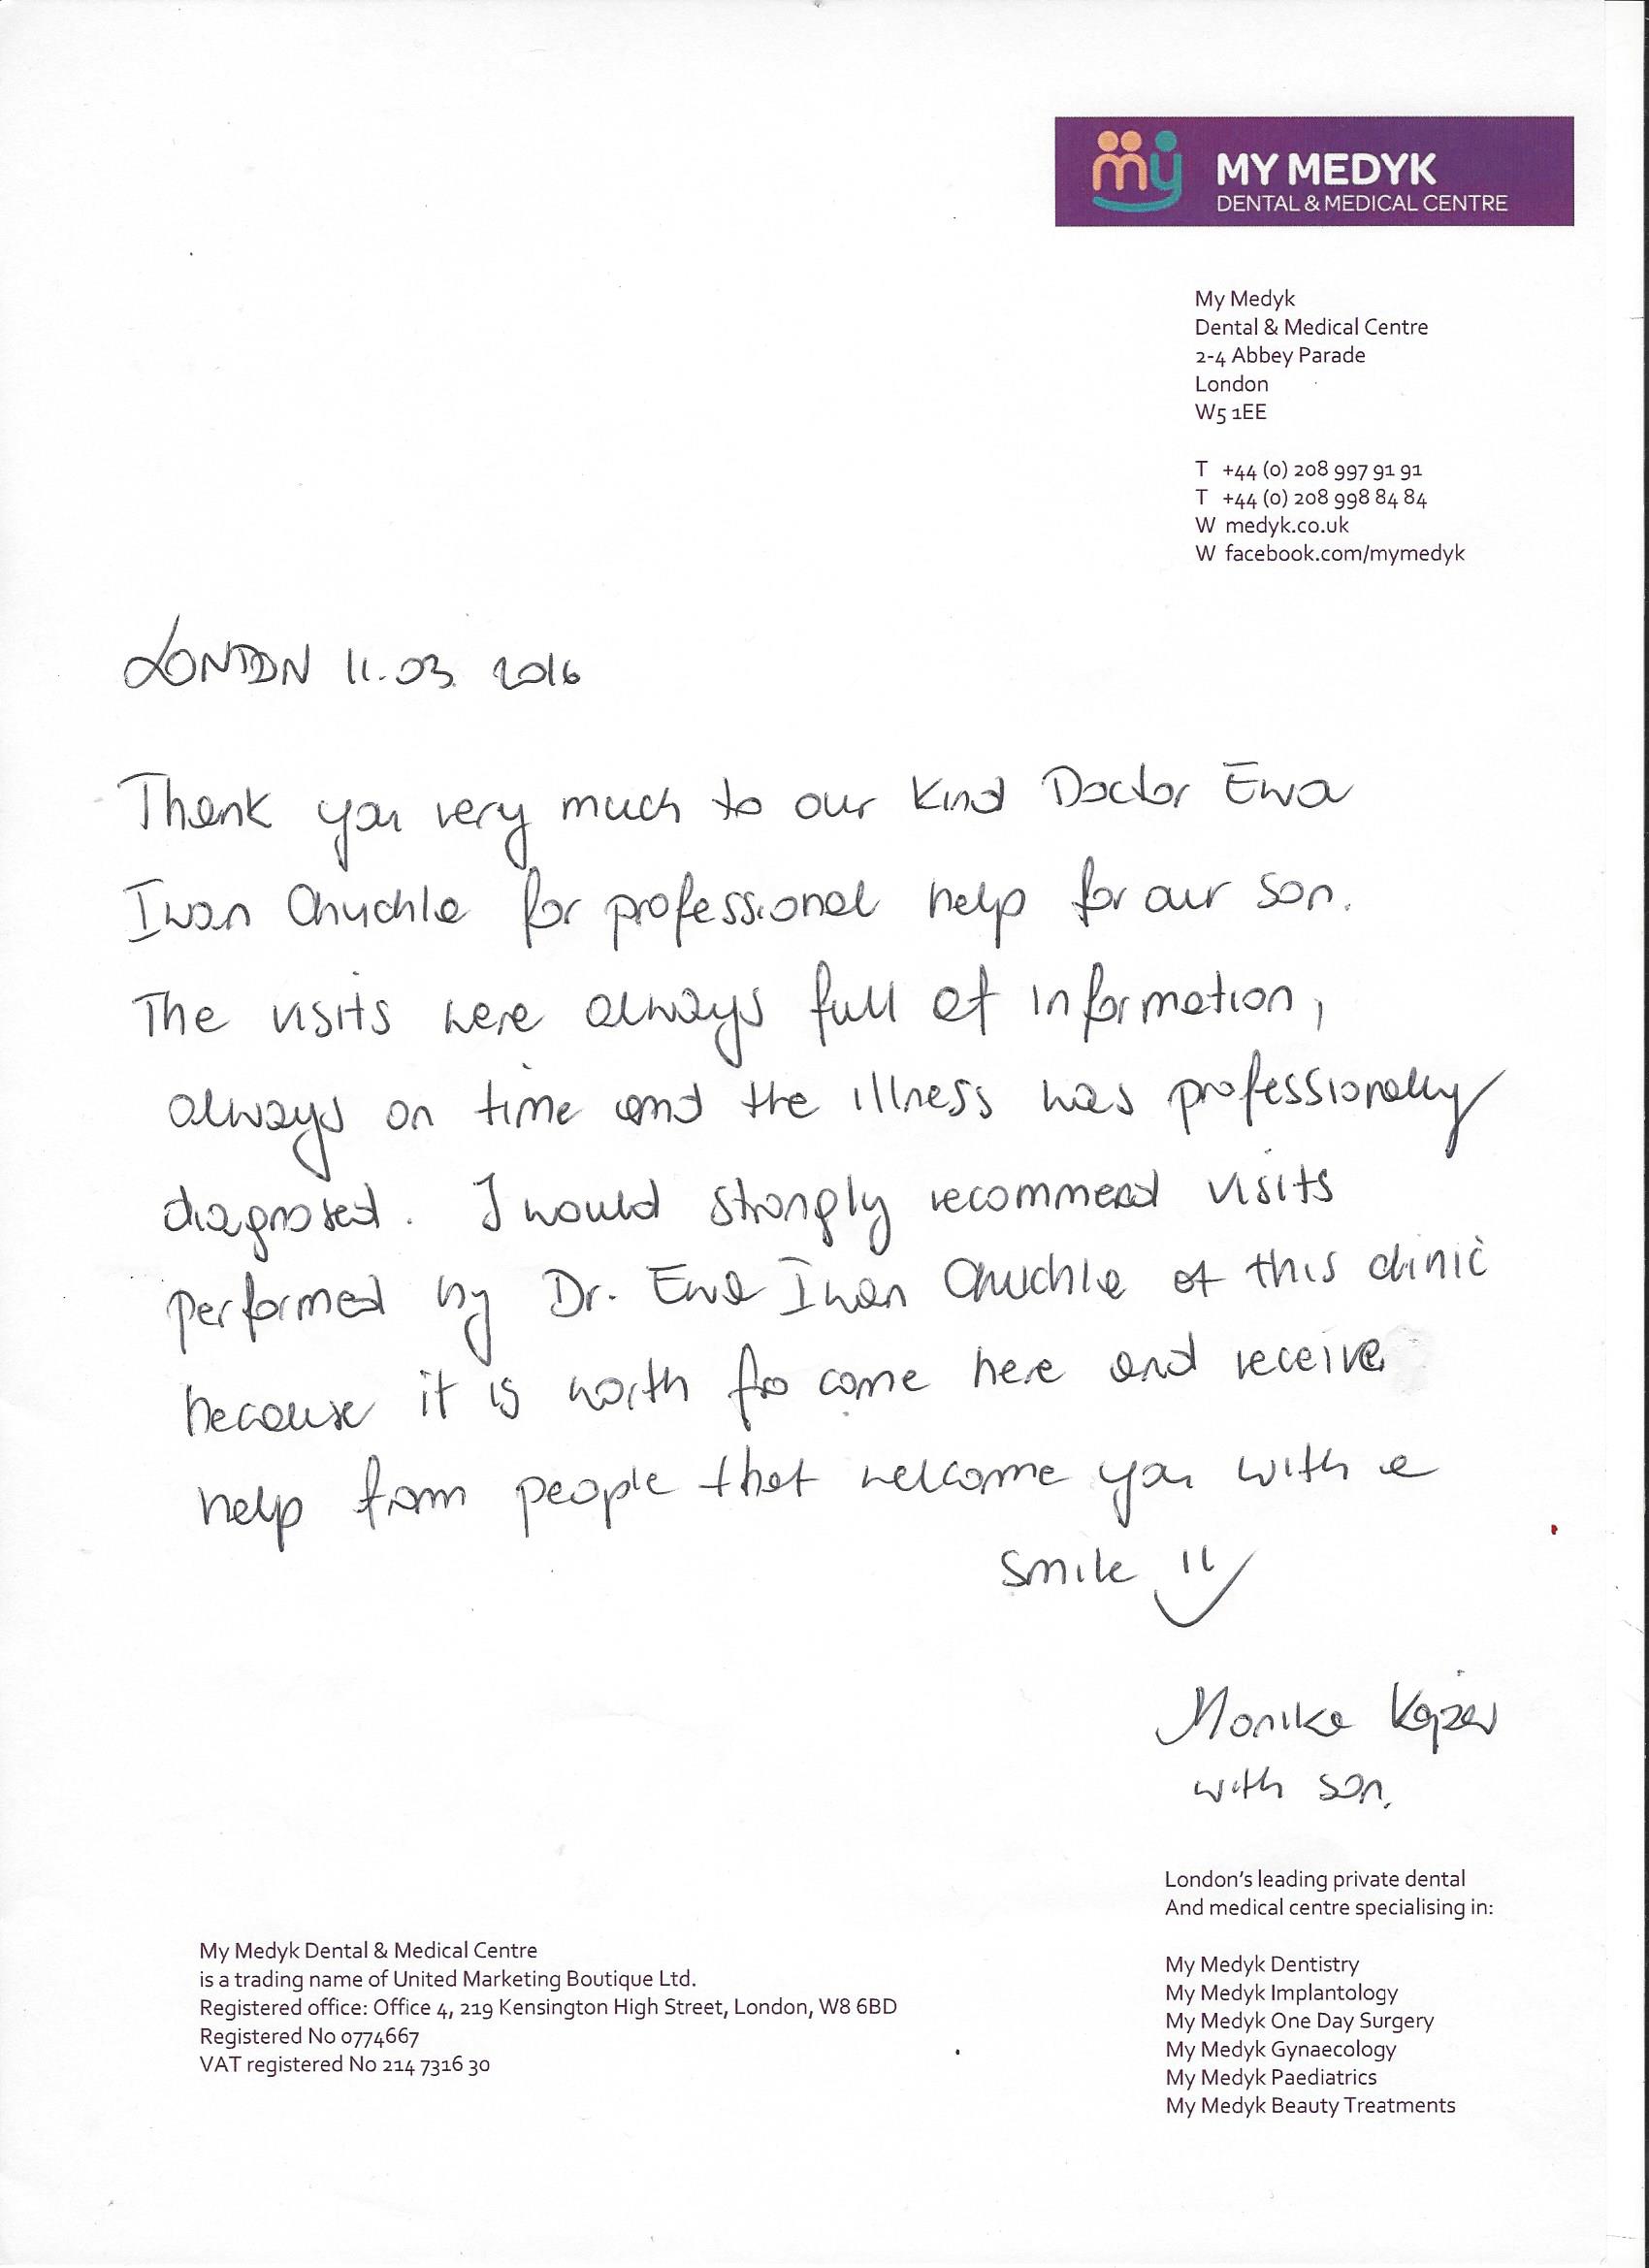 my MY MEDYK
DENTAL & MEDICAL CENTRE
My Medyk
Dental & Medical Centre
2-4 Abbey Parade
London
W5 1EE
T +44 (0) 208 997 91 91
T +44 (0) 208 998 84 84
W medyk.co.uk
W facebook.com/mymedyk
LONDON 11.03. 2016
Thank you very much to our kind Doctor Ewa
Iwan Chuchla for professional help for our son.
The visits were always full of information,
always on time and the illness was professionally
diagnosed. I would strongly recommend visits
performed by Dr. Ewa Iwan Chuchla of this clinic
because it is worth to come here and receive
help from people that welcome you with a
smile
Monika
with son.
London's leading private dental
And medical centre specialising in:
My Medyk Dentistry
My Medyk Implantology
My Medyk One Day Surgery
My Medyk Gynaecology
My Medyk Paediatrics
My Medyk Beauty Treatments
My Medyk Dental & Medical Centre
is a trading name of United Marketing Boutique Ltd.
Registered office: Office 4, 219 Kensington High Street, London, W8 6BD
Registered No 0774667
VAT registered No 214 7316 30